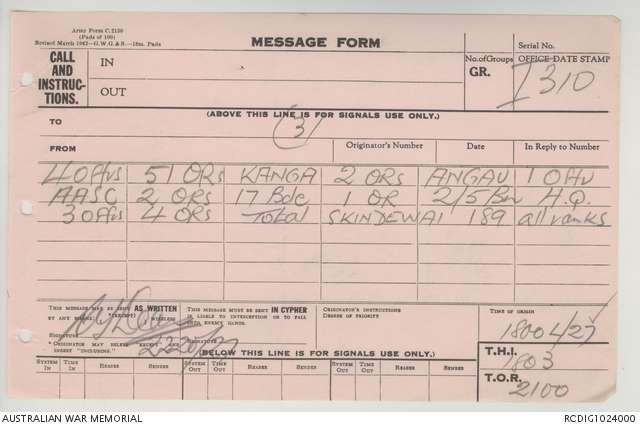 Army Form C.2130
(Pads of 100)
Revised March 1942—G.W.G.&S.—16m. Pads
MESSAGE FORM
Serial No.
CALL AND INSTRUCTIONS.
IN
OUT
No. of Groups
GR.
OFFICE DATE STAMP
I 310
(ABOVE THIS LINE IS FOR SIGNALS USE ONLY.)
TO
(3)
FROM
Originator's Number
Date
In Reply to Number
4 Offrs 51 ORs KANGA 2 ORs ANGAU 1 Offr
AASC 2 ORs 17 Bde 1 OR 2/5 Bn H.Q.
3 Offrs 4 ORs Total SKINDEWAI 189 all ranks
THIS MESSAGE MAY BE SENT AS WRITTEN
BY ANY MEANS (EXCEPT) WIRELESS
SIGNATURE
* ORIGINATOR MAY DELETE "EXCEPT" AND INSERT "INCLUDING."
THIS MESSAGE MUST BE SENT IN CYPHER
IF LIABLE TO INTERCEPTION OR TO FALL INTO ENEMY HANDS.
SIGNATURE
ORIGINATOR'S INSTRUCTIONS
DEGREE OF PRIORITY
TIME OF ORIGIN
1800L/27
(BELOW THIS LINE IS FOR SIGNALS USE ONLY.)
T.H.I.
1803
T.O.R.
2100
SYSTEM IN TIME IN READER SENDER SYSTEM OUT TIME OUT READER SENDER SYSTEM OUT TIME OUT READER SENDER
AUSTRALIAN WAR MEMORIAL
RCDIG1024000